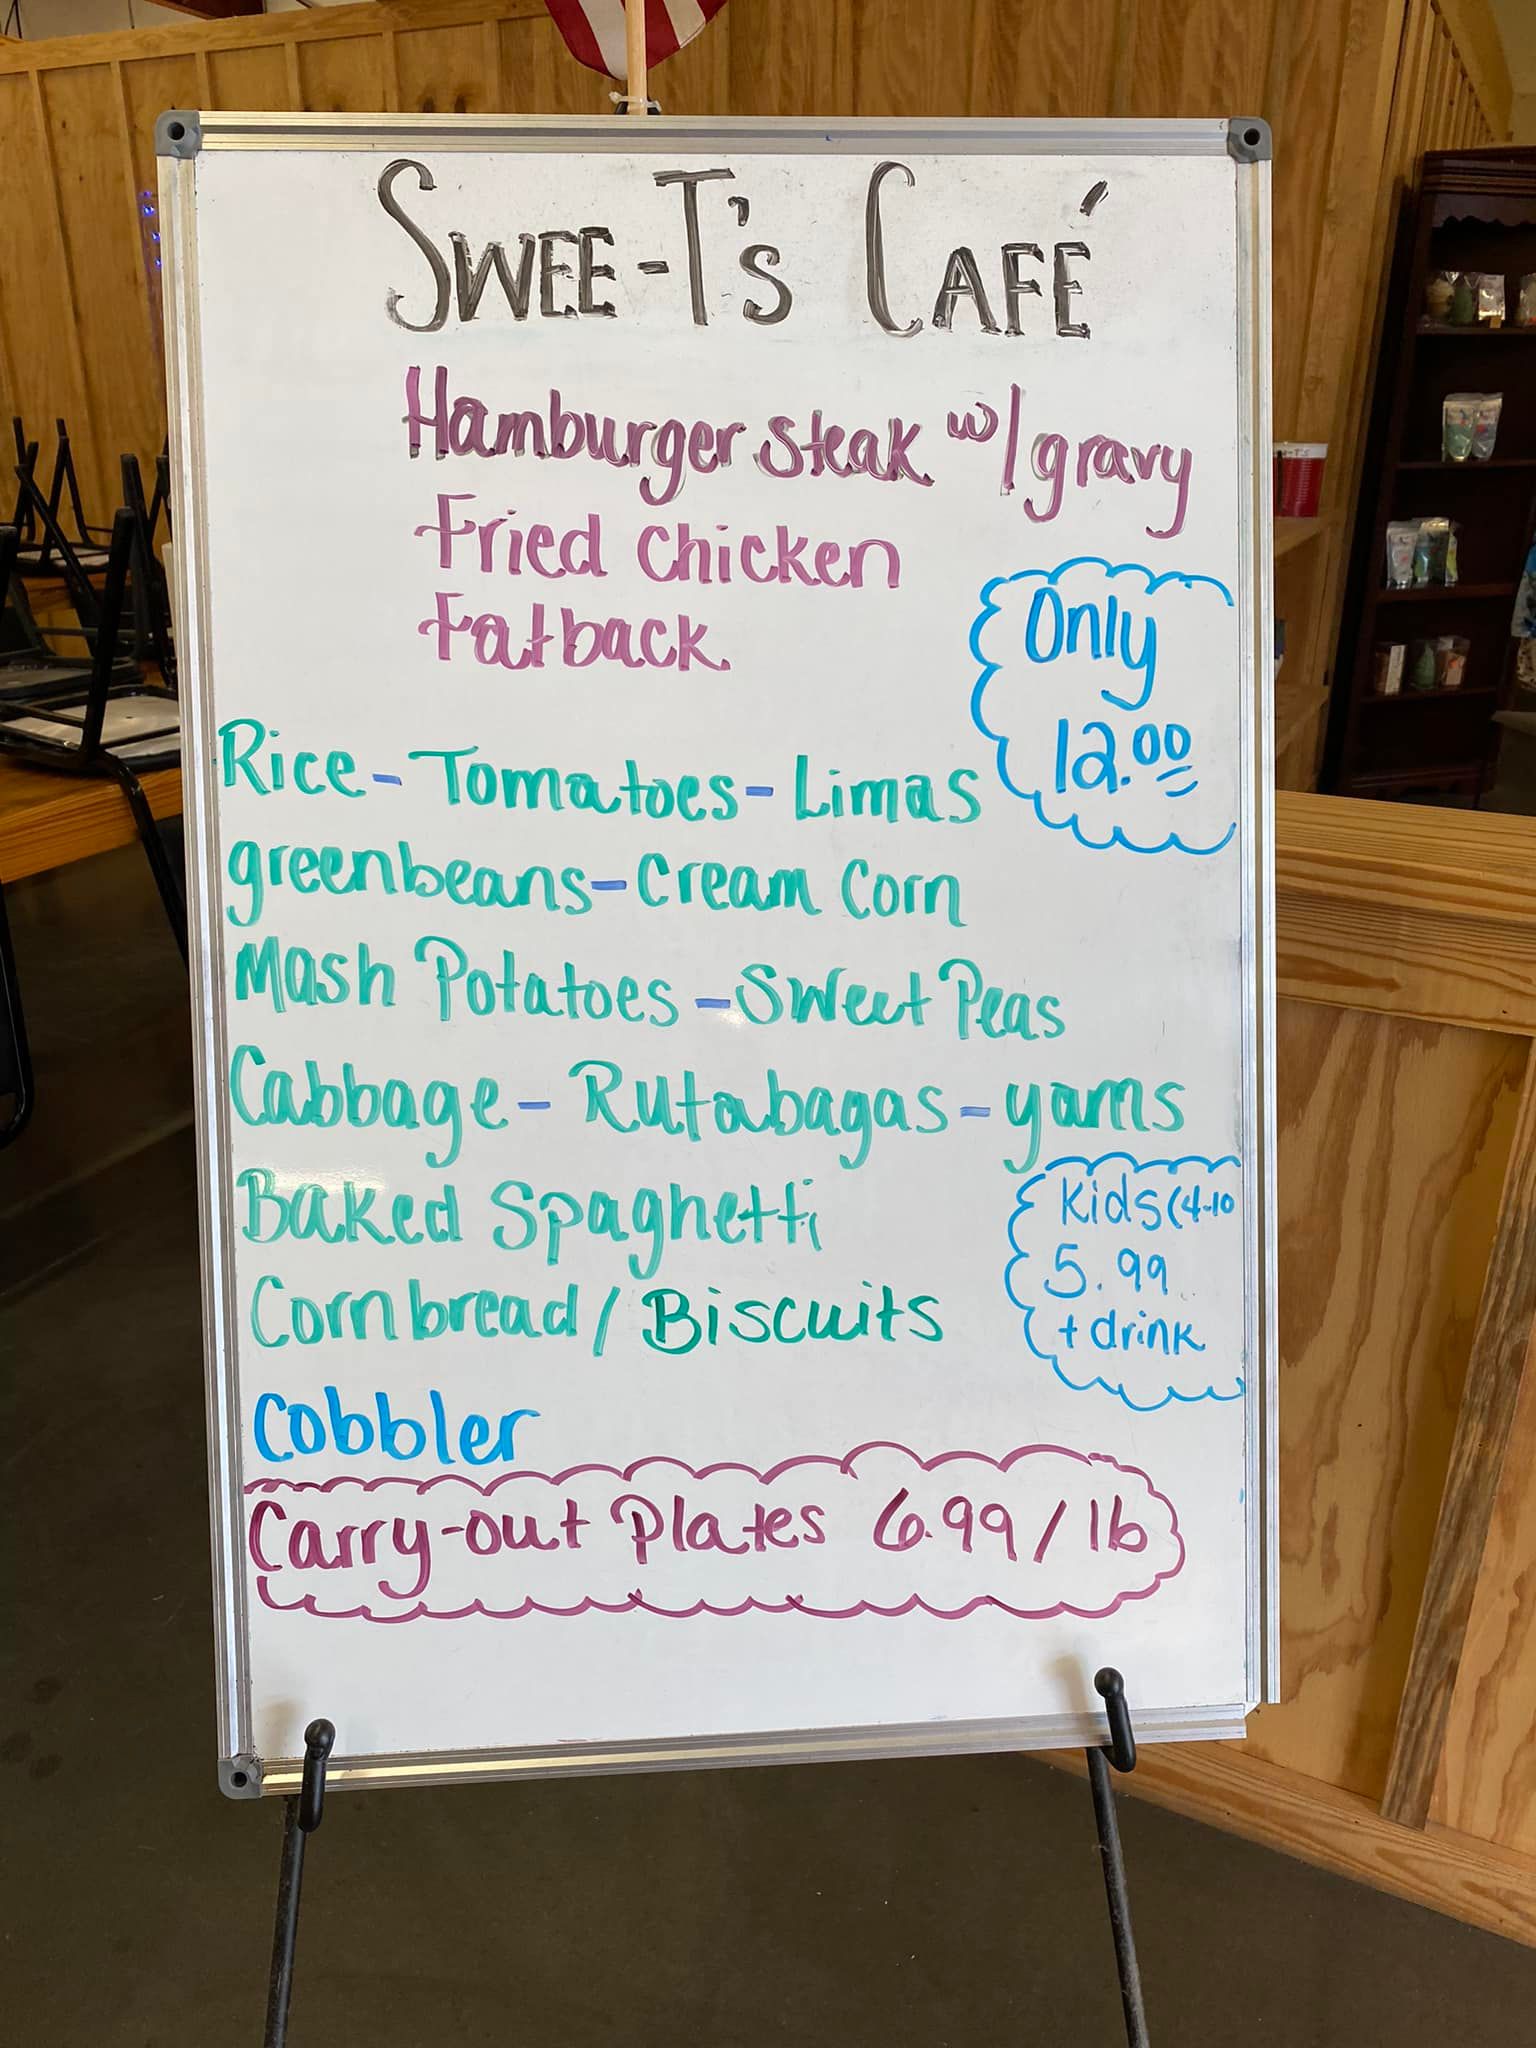 SWEE-T's CAFÉ
Hamburger steak w/gravy
Fried Chicken
Fatback
Only
12.00
Rice - Tomatoes - Limas
greenbeans - Cream Corn
Mash Potatoes - Sweet Peas
Cabbage - Rutabagas - yams
Baked Spaghetti
Kids (4-10
5.99
+ drink
Cornbread / Biscuits
Cobbler
Carry-out Plates 6.99 / lb